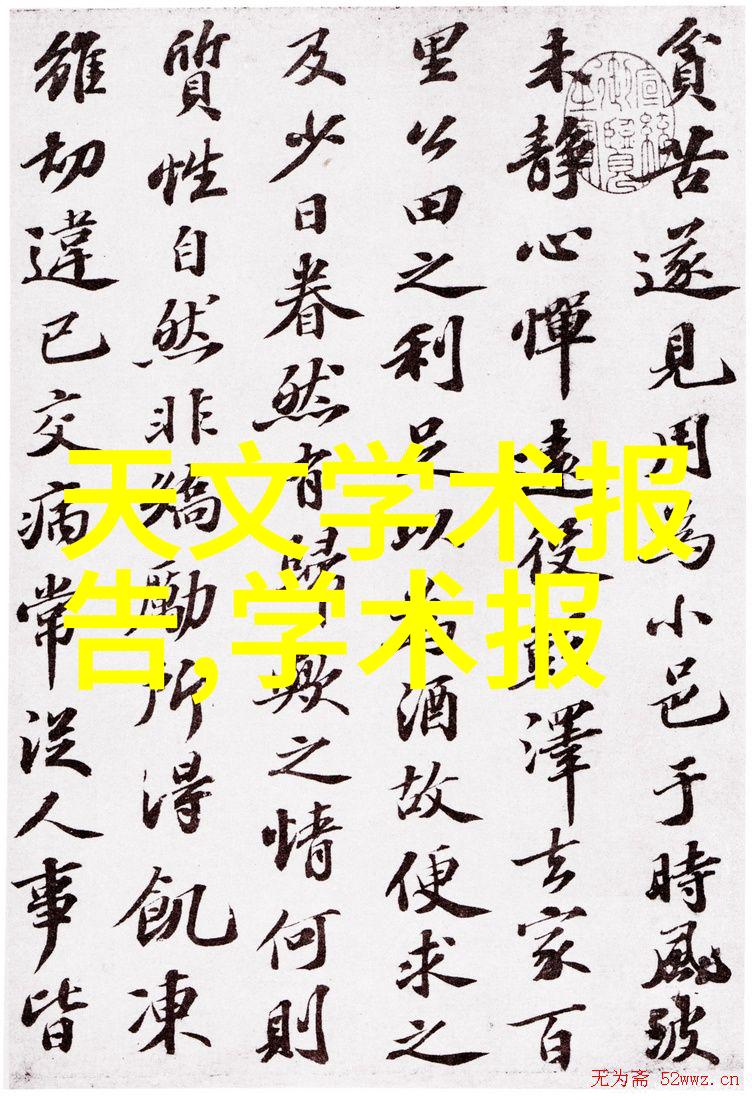 貧苦遂見用為小邑于時風波
未靜心憚遠役彭澤去家百
里公田之利足以為酒故便求之
及少日眷然有歸歟之情何則
質性自然非矯勵所得飢凍
雖切違己交病常從人事皆
天文学术报
告,学术报
无为斋 52wwz.cn